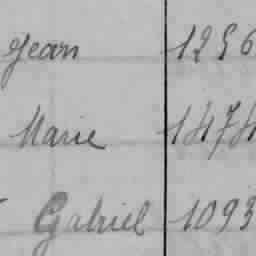 Jean 1256
Marie 1474
Gabriel 1093